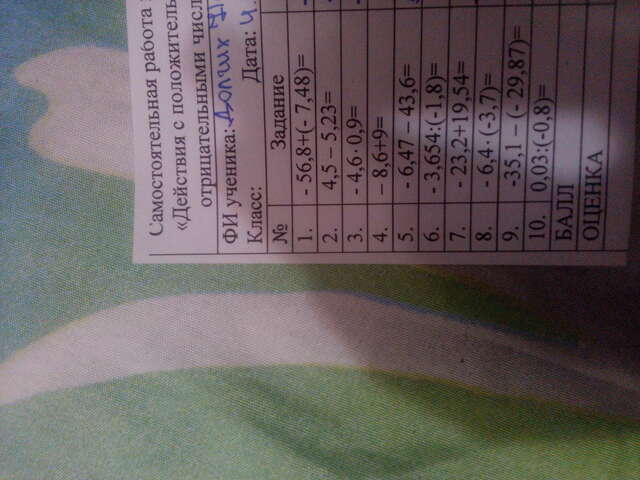 Самостоятельная работа
«Действия с положитель
отрицательными числ
ФИ ученика: Долгих
Класс: Дата: 4.
№ Задание
1. - 56,8+(- 7,48)=
2. 4,5 – 5,23=
3. - 4,6·0,9=
4. – 8,6+9=
5. - 6,47 – 43,6=
6. - 3,654:(-1,8)=
7. - 23,2+19,54=
8. - 6,4·(-3,7)=
9. -35,1 – (- 29,87)=
10. 0,03:(-0,8)=
БАЛЛ
ОЦЕНКА